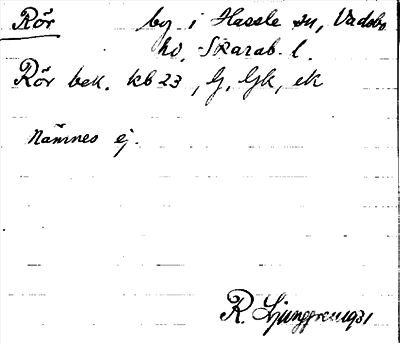 Rör by i Hassle sn, Vadsbo
hd, Skarab. l.
Rör bek. kb 23, G, Gk, ek
Nämnes ej.
R. Ljunggren 1931